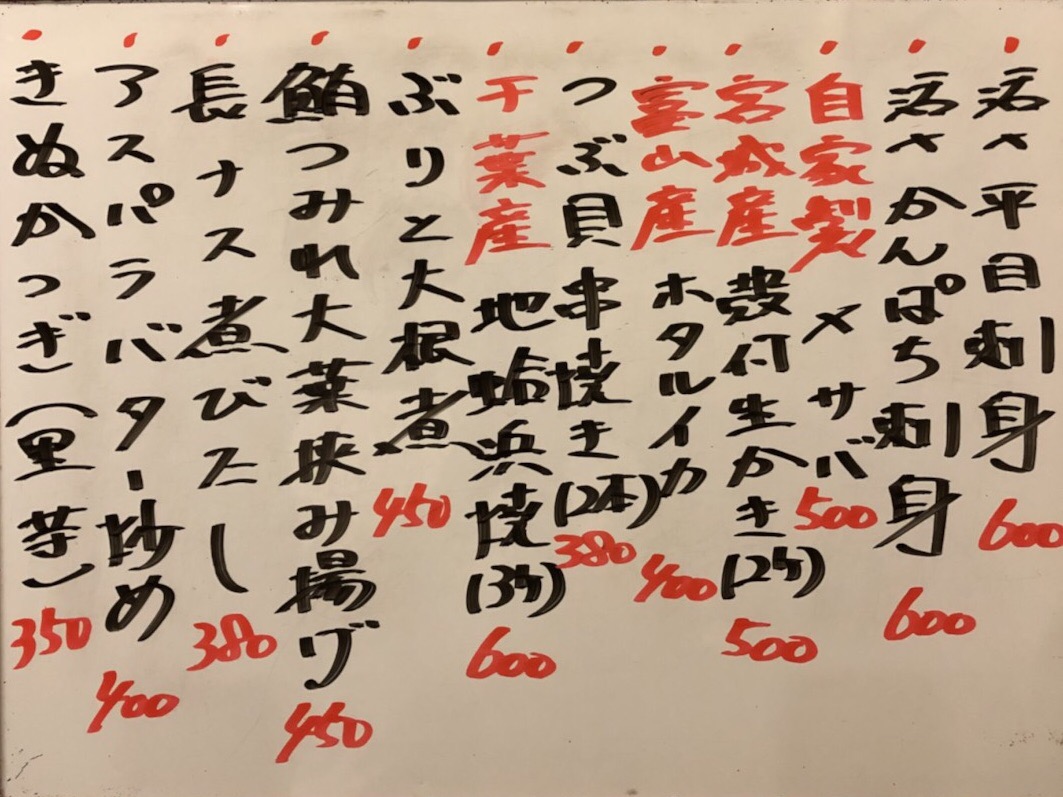 活〆平目刺身 600
活〆かんぱち刺身 600
自家製〆サバ 500
宮城産殻付生かき(2ケ) 500
富山産ホタルイカ 400
つぶ貝串焼き(2本) 380
千葉産地蛤浜焼(3ケ) 600
ぶりと大根煮 450
鮪つみれ大葉挟み揚げ 450
長ナス煮びたし 380
アスパラバター炒め 400
きぬかつぎ(里芋) 350